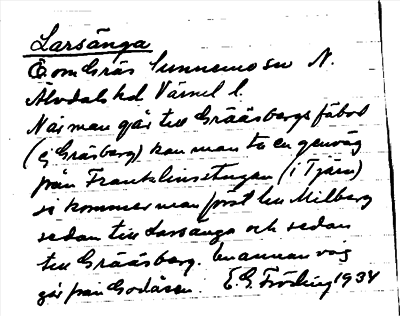 Larsänga
Ö om Gräs Sunnemo sn N.
Älvdals hd Värml l.
När man går till Grääsbergs fäbod
(ej Gråsberg) kan man ta en genväg
från Franklinsstugan (i Tjärn)
så kommer man först till Milberg
sedan till Larsänga och sedan
till Grääsberg. En annan väg
går från Godåsen. E.G. Fröding 1934